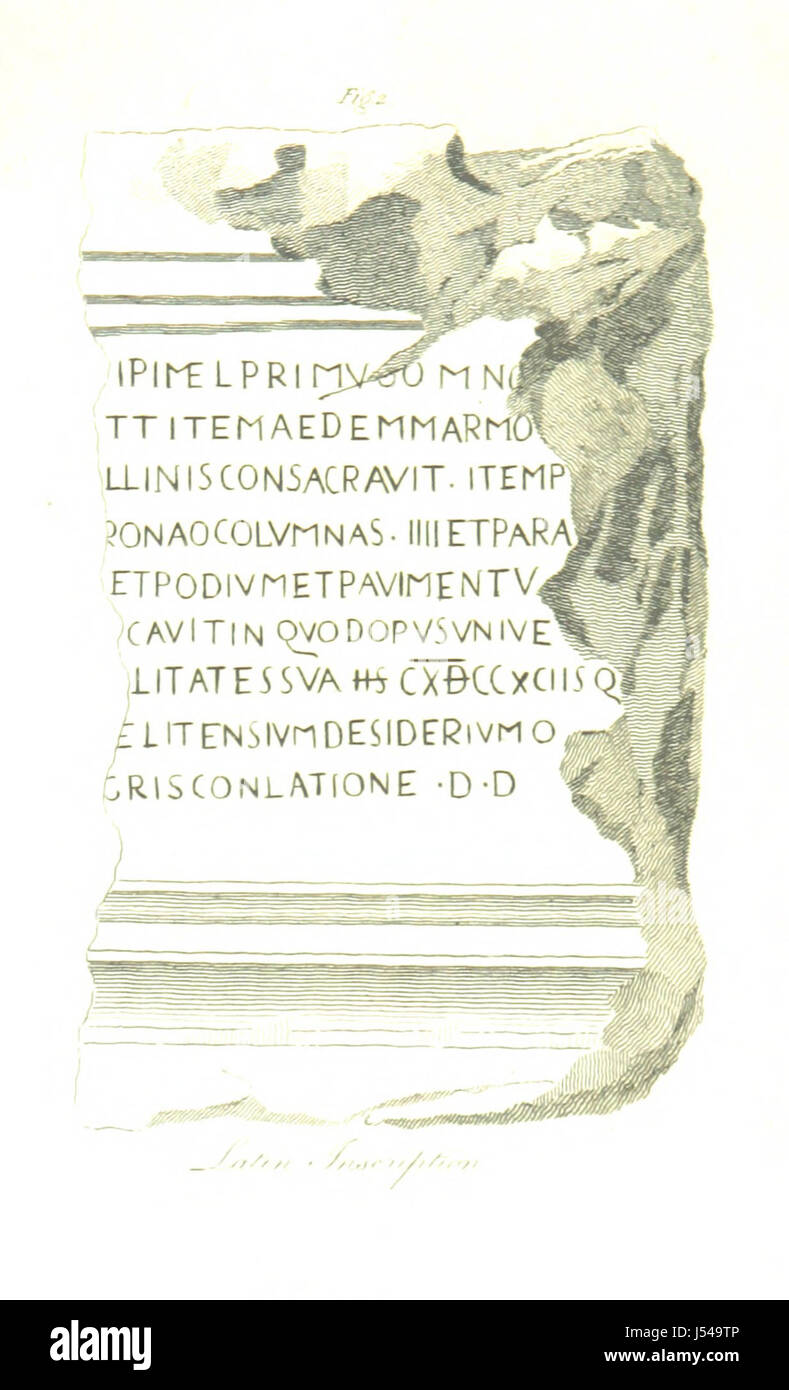 Fig 2
IPIMELPRIMVSOMNO
TTITEMAEDEMMARMO
LLINISCONSACRAVIT · ITEMP
RONAOCOLVMNAS · IIIIETPARA
ETPODIVMETPAVIMENTV
CAVITIN QVODOPVSVNIVE
LITATESSVA HS CXDCCXCIISQ
ELITENSIVMDESIDERIVMO
GRISCONLATIONE · D · D
Latin Inscription
a
alamy
Image ID: J549TP
www.alamy.com